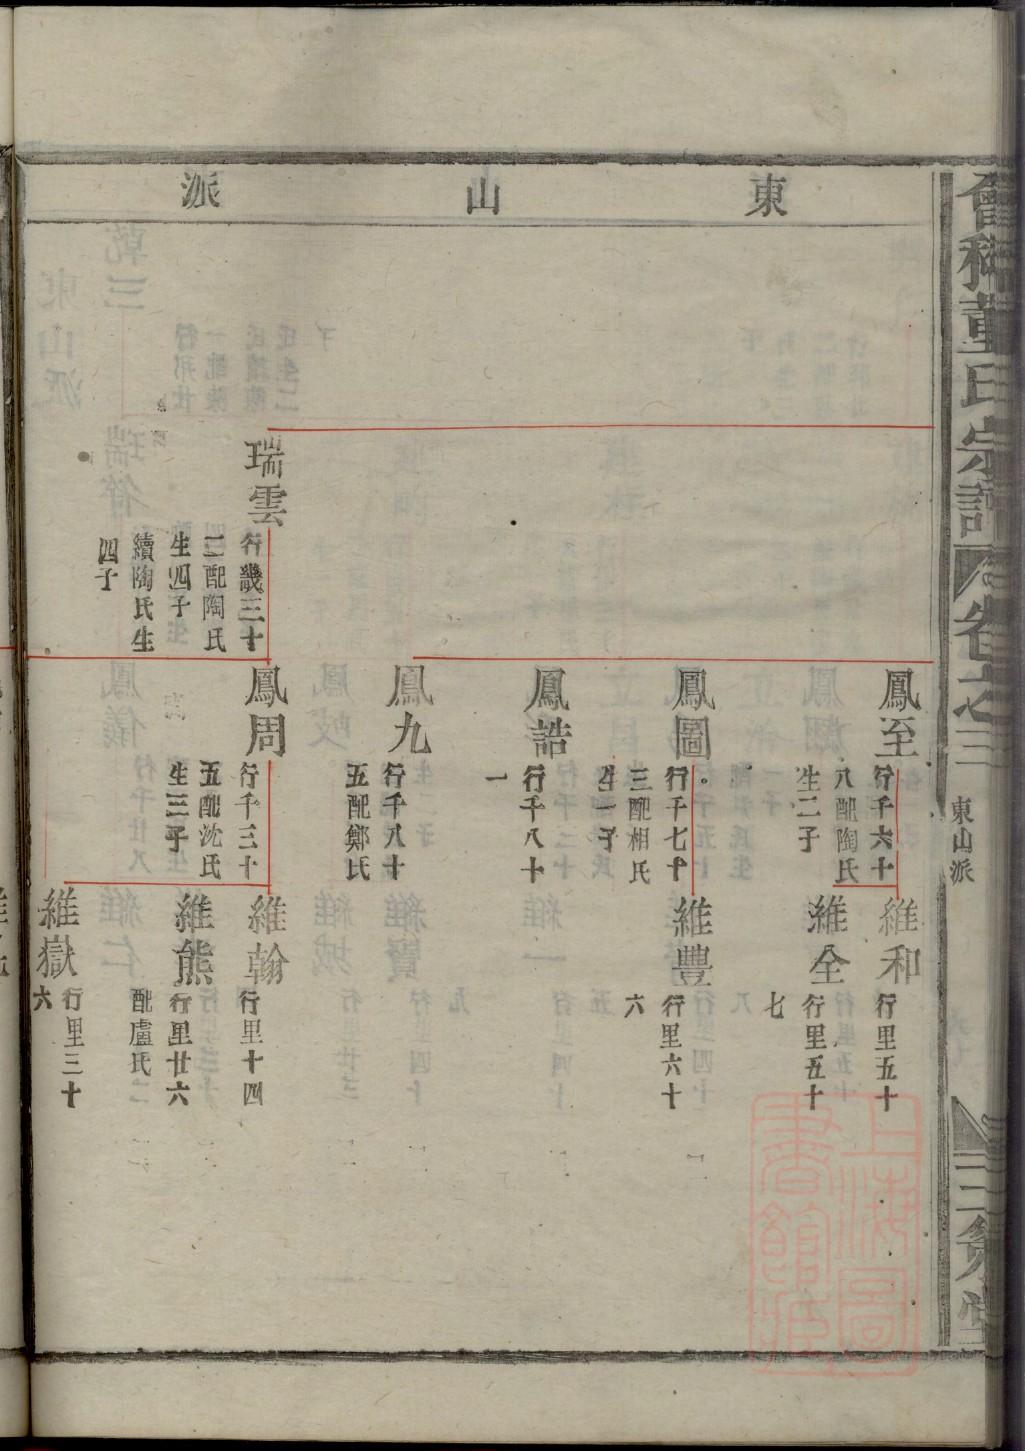 會稽董氏宗譜
卷之三
東山派
三策堂
東山派
瑞雲
行畿三十
二配陶氏
生四子
續陶氏生
四子
鳳至
行千六十
八配陶氏
生二子
鳳圖
行千七十
三配相氏
生一子
鳳誥
行千八十
一
鳳九
行千八十
五配鄭氏
鳳周
行千三十
五配沈氏
生三子
維和
行里五十
維全
行里五十
七
維豐
行里六十
六
維翰
行里十四
維熊
行里廿六
配盧氏
維嶽
行里三十
六
上海圖
書館藏